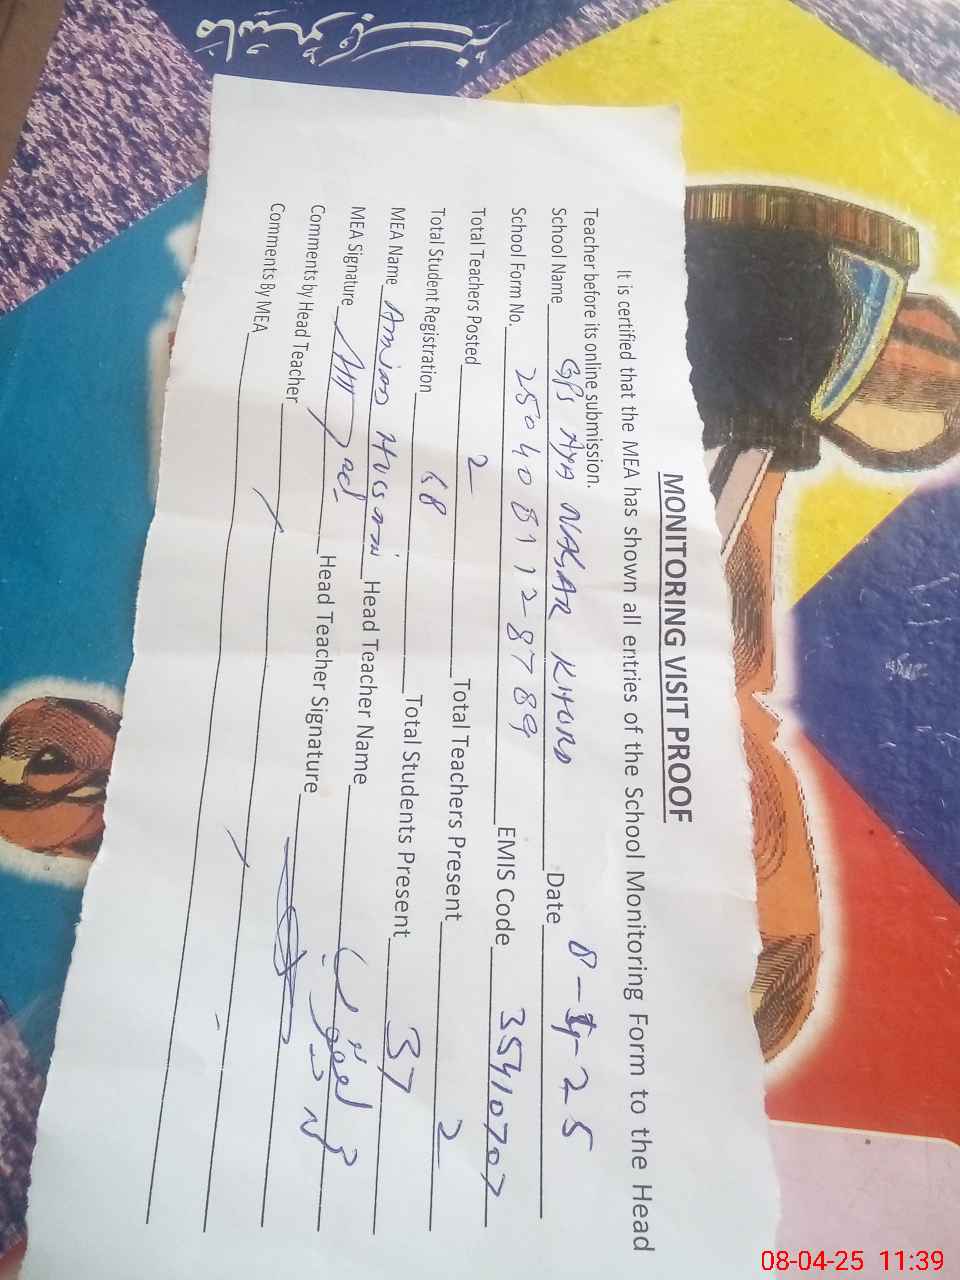 MONITORING VISIT PROOF
It is certified that the MEA has shown all entries of the School Monitoring Form to the Head
Teacher before its online submission.
School Name GPS AYA NAGAR KHURD Date 8-4-25
School Form No. 2504081128789 EMIS Code 35410707
Total Teachers Posted 2 Total Teachers Present 2
Total Student Registration 68 Total Students Present 37
MEA Name Hussain Head Teacher Name
MEA Signature Head Teacher Signature
Comments by Head Teacher
Comments By MEA
08-04-25 11:39